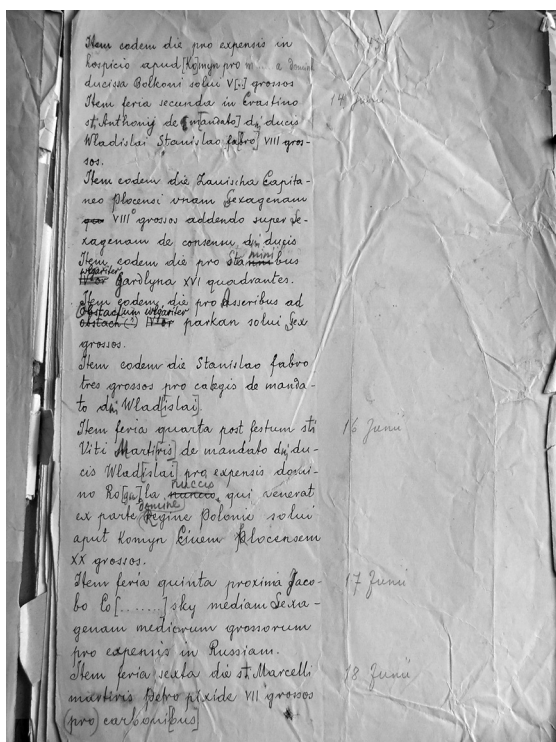 Item eodem die pro expensis in
hospicio apud [Komyn pro m... a domina
ducissa Bolkoni solui V[.] grossos
Item feria secunda in Crastino 14 Junii
sti Anthony de [mandato] dni ducis
Wladislai Stanislao fa[bro] VIII gros-
sos.
Item eodem die Zauischa Capita-
neo Plocensi vnam Sexagenam
VIII grossos addendo super Se-
xagenam de consensu dni ducis
Item eodem die pro staminibus
wlgariter Gardlyna XVI quadrantes.
Item eodem die pro Asseribus ad
Obstaclum wlgariter parkan solui Sex
grossos.
Item eodem die Stanislao fabro
tres grossos pro calegis de manda-
to dni Wladi[slai].
Item feria quarta post festum sti 16 Junii
Viti Martiris] de mandato dni du-
cis Wlad[islai] pro expensis domi-
no Ro[gu]la nuccio qui venerat
ex parte domine Regine Polonie solui
aput Komyn Ciuem Plocensem
XX grossos.
Item feria quinta proxima Jaco- 17 Junii
bo Co[........]sky mediam Sexa-
genam mediorum grossorum
pro expensis in Russiam.
Item feria sexta die sti Marcelli 18 Junii
martiris Petro pixide VII grossos
(pro) carbonibus]